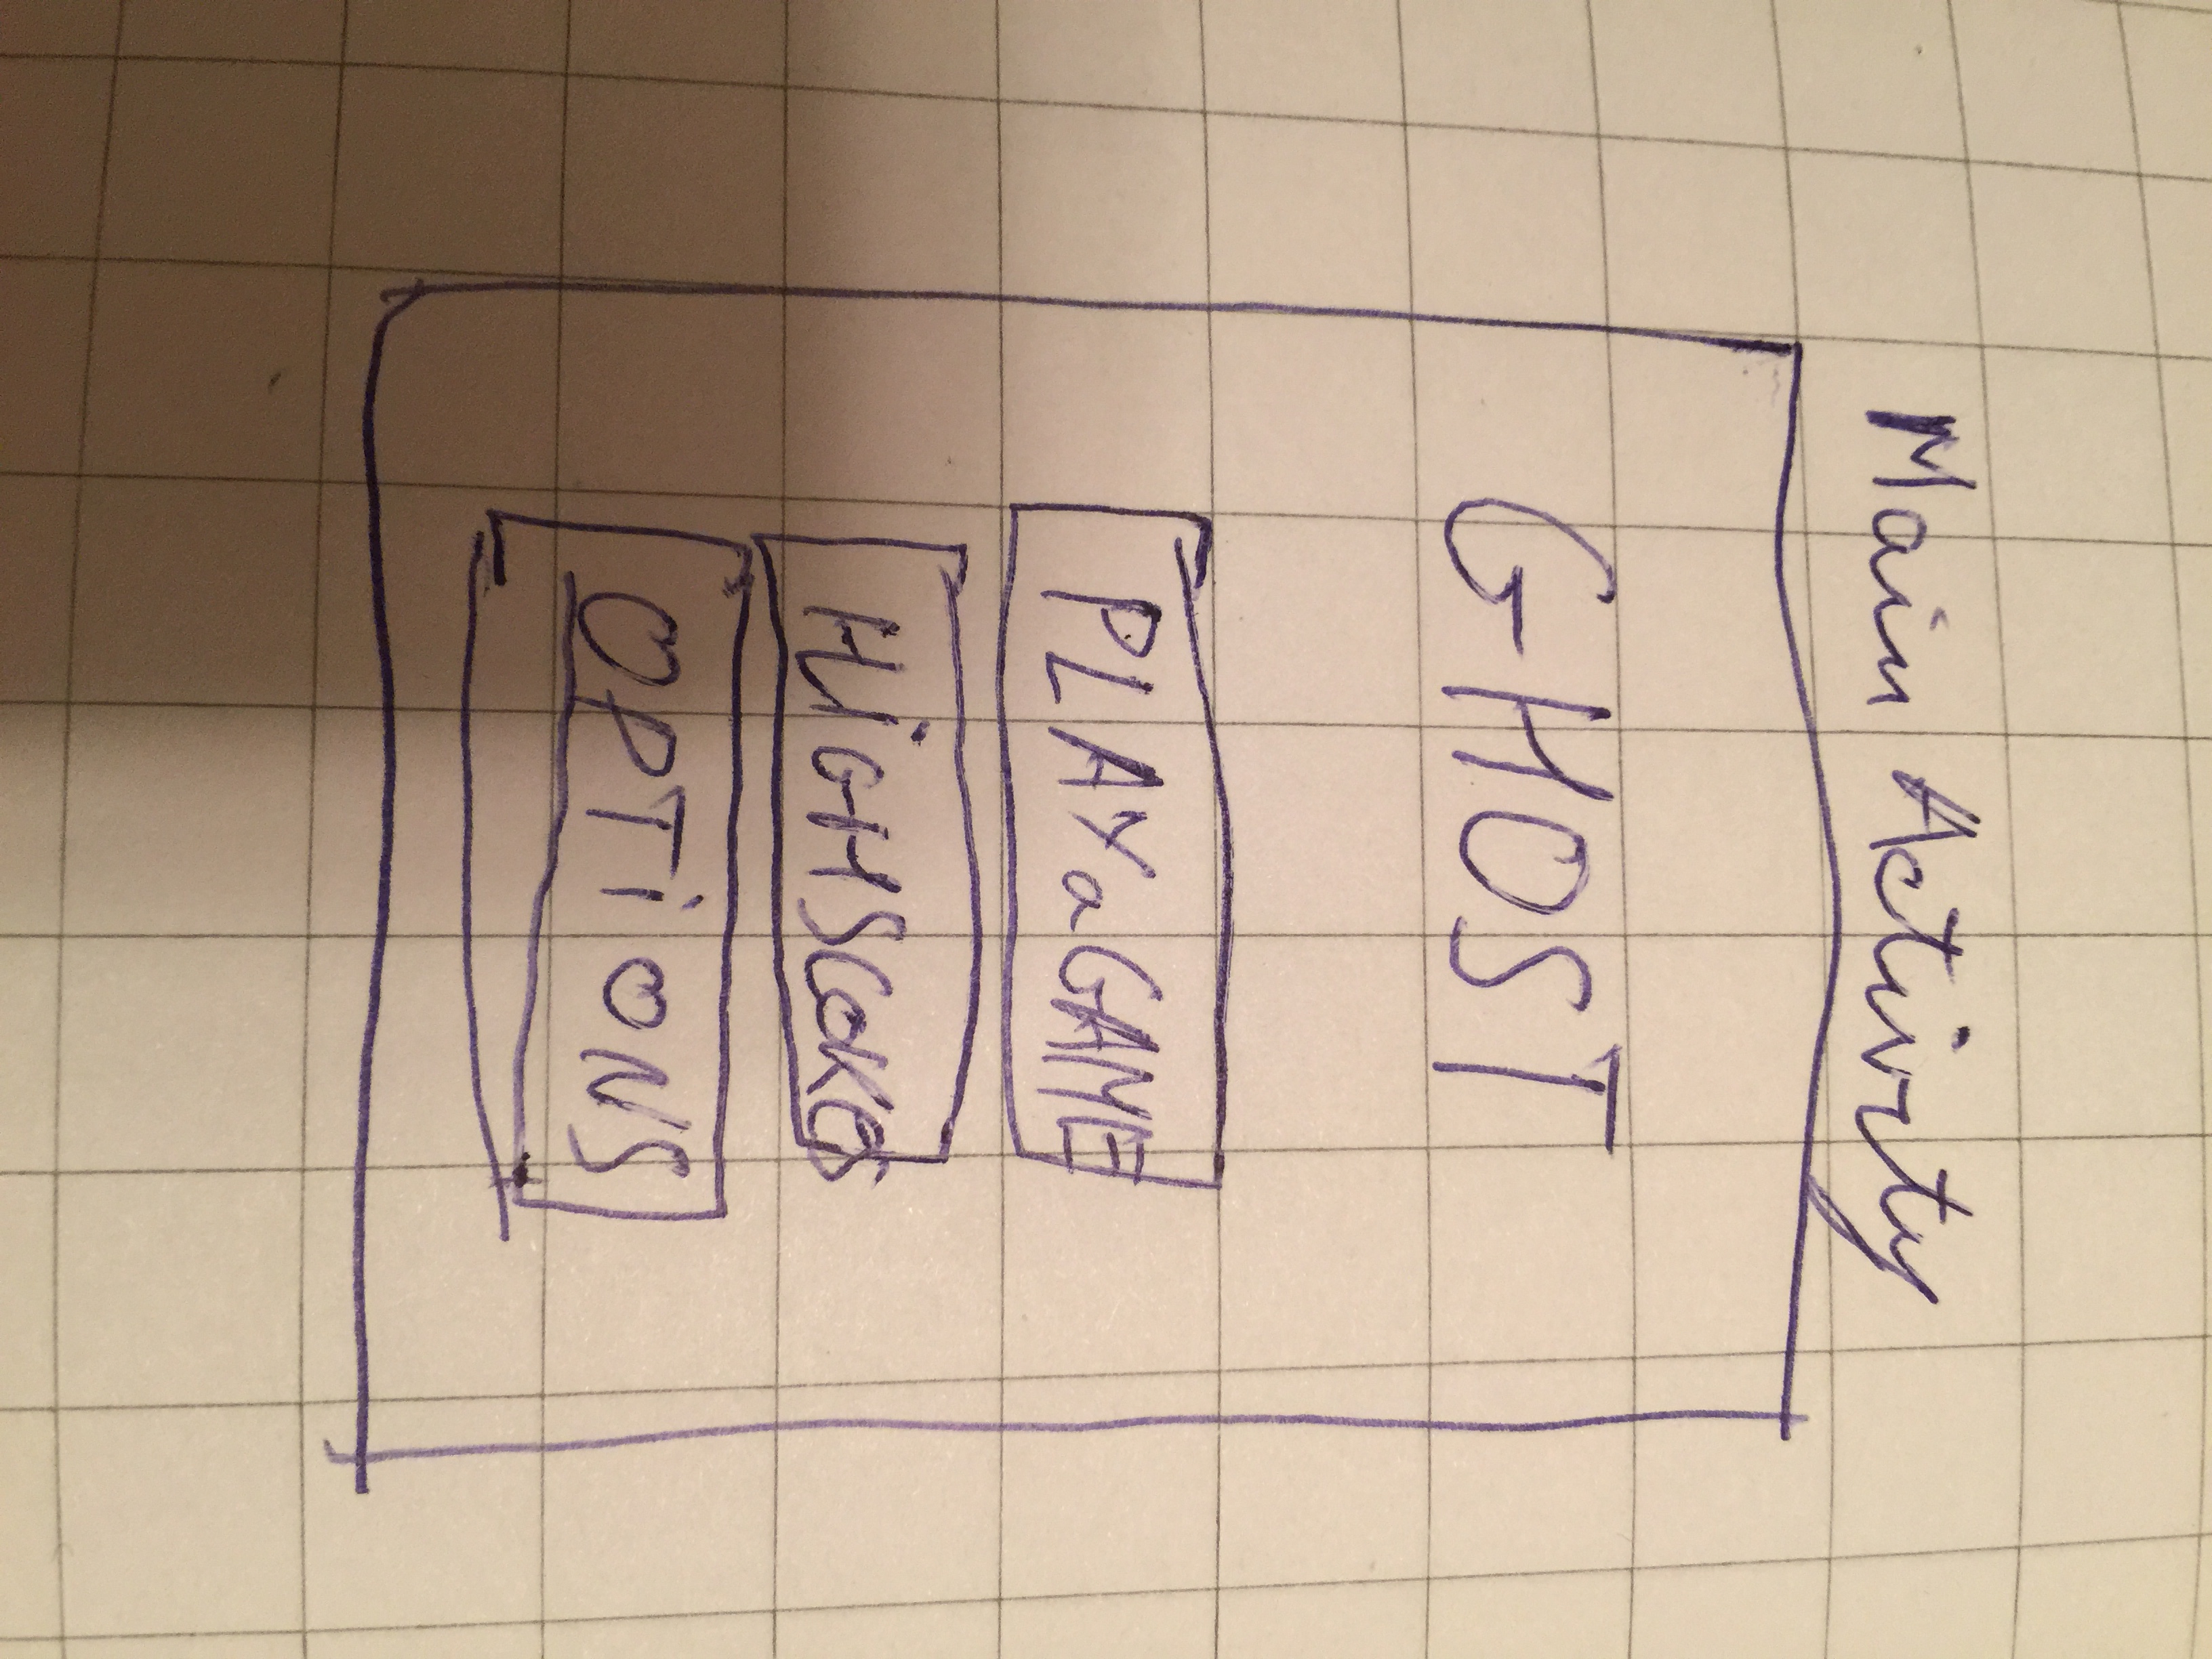 Main Activity
GHOST
PLAY a GAME
HiGHSCORES
OPTiONS